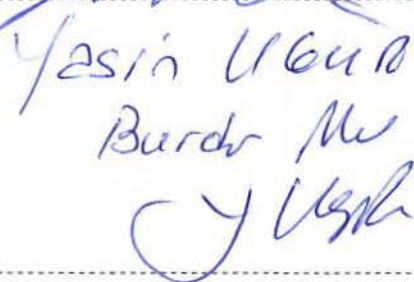 Yasin UĞUR
Burdur Mv